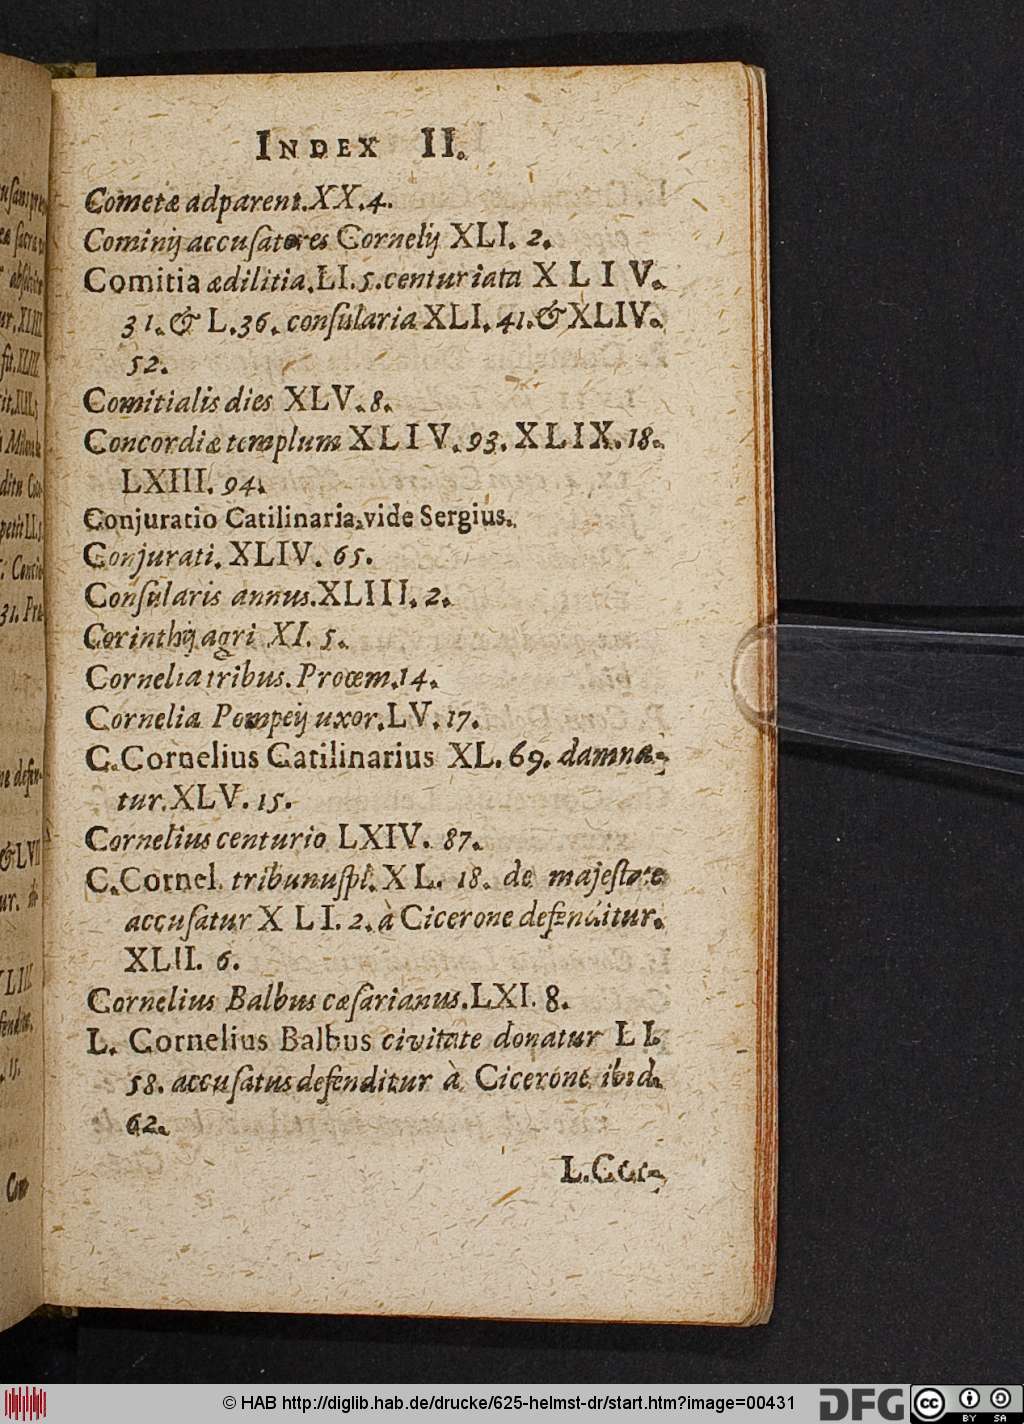 INDEX II.
Cometæ adparent. XX. 4.
Cominij accusatores Cornelij XLI. 2.
Comitia ædilitia. LI. 5. centuriata XLIV.
31. & L. 36. consularia XLI. 41. & XLIV.
52.
Comitialis dies XLV. 8.
Concordiæ templum XLIV. 93. XLIX. 18.
LXIII. 94.
Conjuratio Catilinaria, vide Sergius.
Conjurati. XLIV. 65.
Conſularis annus. XLIII. 2.
Corinthij agri XI. 5.
Cornelia tribus. Proœm. 14.
Cornelia Pompeij uxor. LV. 17.
C. Cornelius Catilinarius XL. 69. damna-
tur. XLV. 15.
Cornelius centurio LXIV. 87.
C. Cornel. tribunus pl. XL. 18. de majeſtate
accuſatur XLI. 2. à Cicerone defenditur.
XLII. 6.
Cornelius Balbus cæſarianus. LXI. 8.
L. Cornelius Balbus civitate donatur LI.
58. accuſatus defenditur à Cicerone ibid.
62.
© HAB http://diglib.hab.de/drucke/625-helmst-dr/start.htm?image=00431
DFG
cc
BY SA